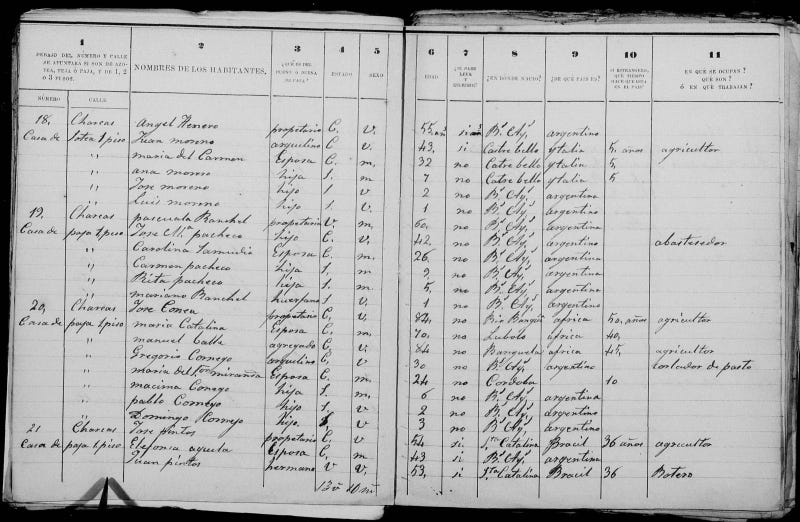 1 2 3 4 5 6 7 8 9 10 11
DEBAJO DEL NÚMERO Y CALLE SE APUNTARÁ SI SON DE AZOTEA, TEJA Ó PAJA, Y DE 1, 2 Ó 3 PISOS. NOMBRES DE LOS HABITANTES. ¿QUIÉN ES DUEÑO Ó DUEÑA DE CASA? ESTADO SEXO EDAD ¿SI SABE LEER Y ESCRIBIR? ¿EN DÓNDE NACIÓ? ¿DE QUÉ PAÍS ES? SI ESTRANGERO, QUÉ TIEMPO HACE QUE ESTÁ EN EL PAÍS? EN QUÉ SE OCUPAN? QUÉ SON? Ó EN QUÉ TRABAJAN?
NÚMERO CALLE
18, Charcas Angel Henero propetario C. v. 55, si Bs Ays argentino
Casa de Sotea 1 piso Juan moreno arquelino C. v. 43, si Catre bello ytalia 5, años agricultor
" maria del Carmen Esposa C. m. 32 no Catre bello ytalia 5,
" ana moreno hija S. m. 7 no Catre bello ytalia 5
" Jose moreno hijo S. v 2 no Bs Ays argentina
" Luis moreno hijo S. v. 1 no Bs Ays argentina
19, Charcas pascuala Banchel propetaria V m 60, no Bs Ays argentina
Casa de paja 1 piso Jose Ma pacheco hijo C. v. 42, no Bs Ays argentino abastesedor
" Carolina Samudia Esposa C. m. 26, no Bs Ays argentina
" Carmen pacheco hija S. m 9, no Bs Ays argentina
" Rita pacheco hija S. m. 5, no Bs Ays argentina
" mariano Banchel huerfano S. v, 1 no Bs Ays argentino
20, Charcas Jose Conea propetario C. v. 82, no africa 50, años agricultor
Casa de paja 1 piso maria Catalina Esposa C. m. 70, no Lubolo africa 40,
" manuel Calle agregado C. v. 84 no Banguela africa 45, agricultor
" Gregorio Cornejo arquelino C. v. 30 no Bs Ays argentino cortador de pasto
" maria del miranda Esposa C. m. 24 no Cordoba 10
" macima Cornejo hija S. m. 6 no Bs Ays argentina
" pablo Cornejo hijo S. v 2 no Bs Ays argentino
" Domingo Cornejo hijo S v. 3 no Bs Ays argentino
21 Charcas Jose pintos propetario C. v 54, si Sta Catalina Bracil 36 años agricultor
Casa de paja 1 piso Elefonia aguela Esposa C. m. 43 si Bs Ays argentina
Juan pintos hermano V v. 53, si Sta Catalina Bracil 36 Botero
13 v 10 m